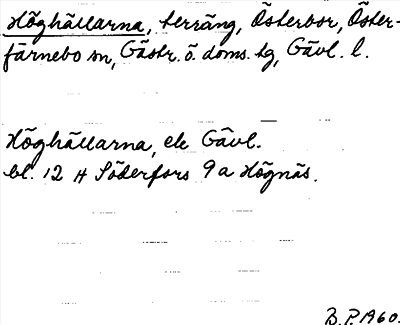 Höghällarna, terräng, Österbor, Öster-
färnebo sn, Gästr. ö. doms. tg, Gävl. l.
Höghällarna, ek Gävl.
bl. 12 H Söderfors 9 a Högnäs.
B. P. 1960.